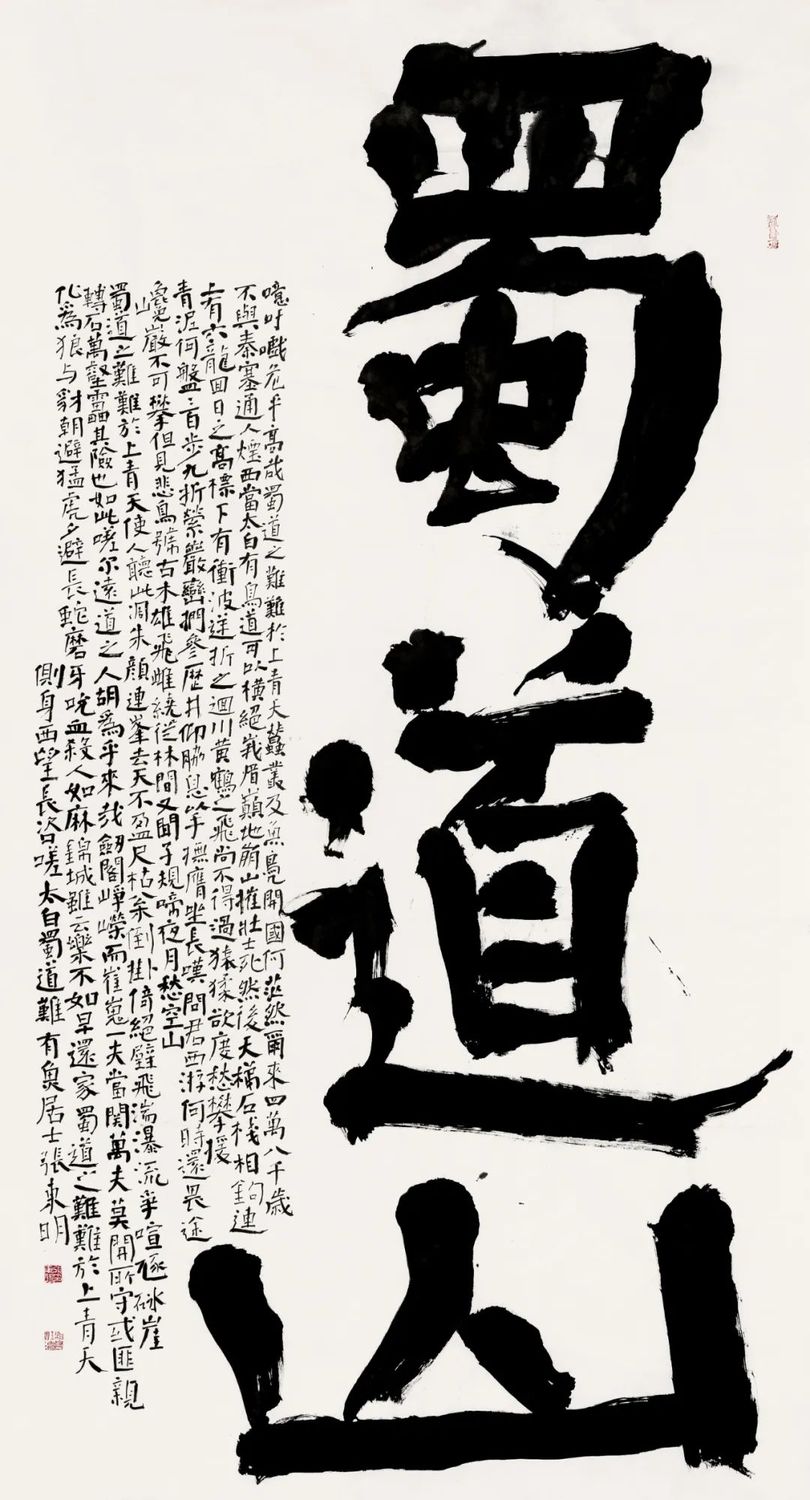 蜀道山
噫吁嚱危乎高哉蜀道之難難於上青天蠶叢及魚鳧開國何茫然爾來四萬八千歲
不與秦塞通人煙西當太白有鳥道可以橫絕峩眉巔地崩山摧壯士死然後天梯石棧相鉤連
上有六龍回日之高標下有衝波逆折之迴川黃鶴之飛尚不得過猿猱欲度愁攀援
青泥何盤〻百步九折縈巖巒捫參歷井仰脇息以手撫膺坐長嘆問君西游何時還畏途
巉巖不可攀但見悲鳥號古木雄飛雌繞從林間又聞子規啼夜月愁空山
蜀道之難難於上青天使人聽此凋朱顏連峯去天不盈尺枯松倒掛倚絕壁飛湍瀑流爭喧豗砯崖
轉石萬壑靁其險也如此嗟尔遠道之人胡為乎來哉劒閣崢嶸而崔嵬一夫當関萬夫莫開所守或匪親
化為狼与豺朝避猛虎夕避長蛇磨牙吮血殺人如麻錦城雖云樂不如早還家蜀道之難難於上青天
側身西望長咨嗟太白蜀道難有魚居士張東明